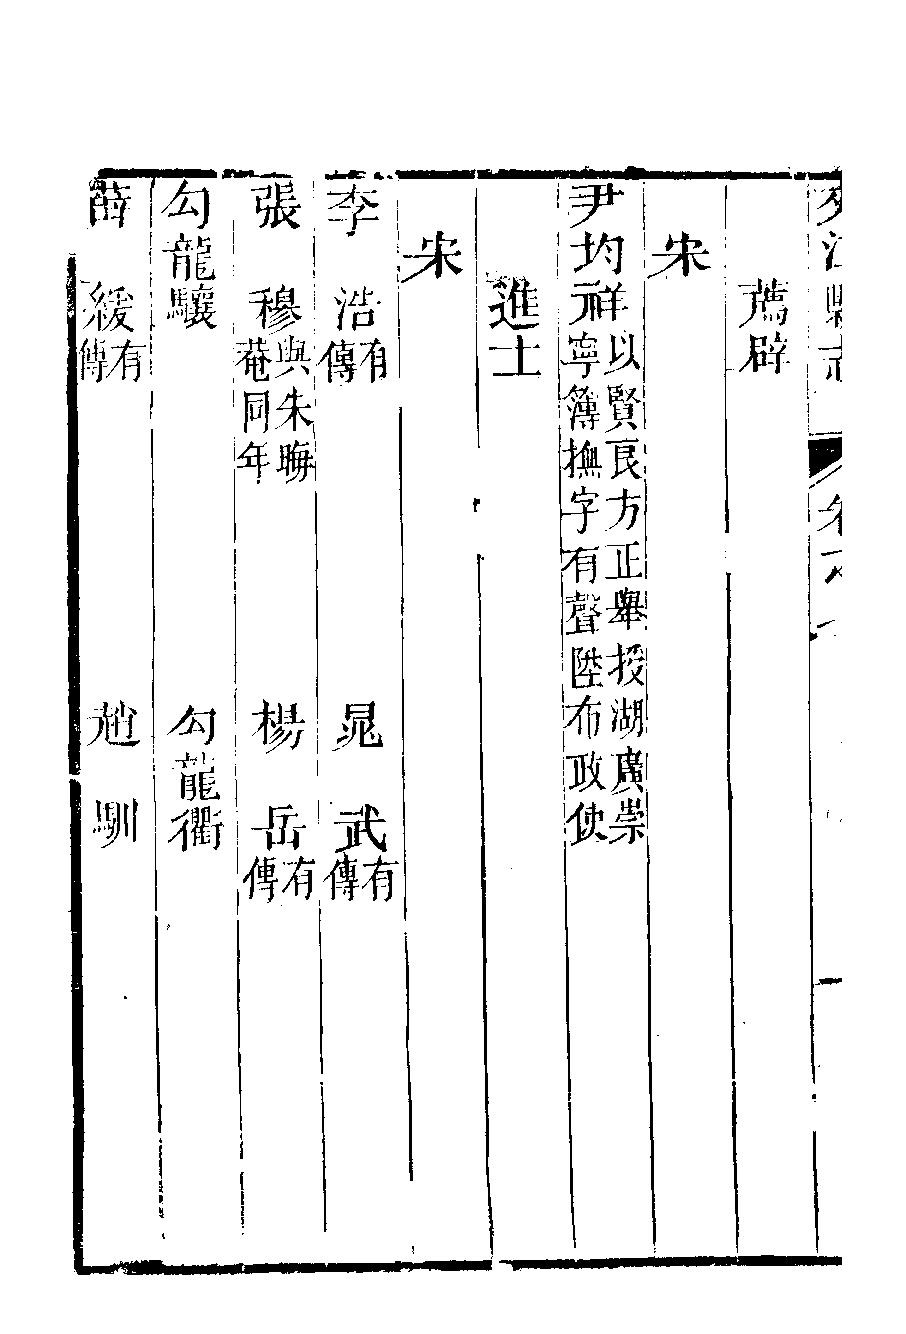 夾江縣志 卷之
薦辟
宋
尹均祥 以賢良方正舉授湖廣崇寧簿撫字有聲陞布政使
進士
宋
李浩 有傳 晁武 有傳
張穆 與朱晦菴同年 楊岳 有傳
勾龍驤 勾龍衢
薛緩 有傳 趙馴